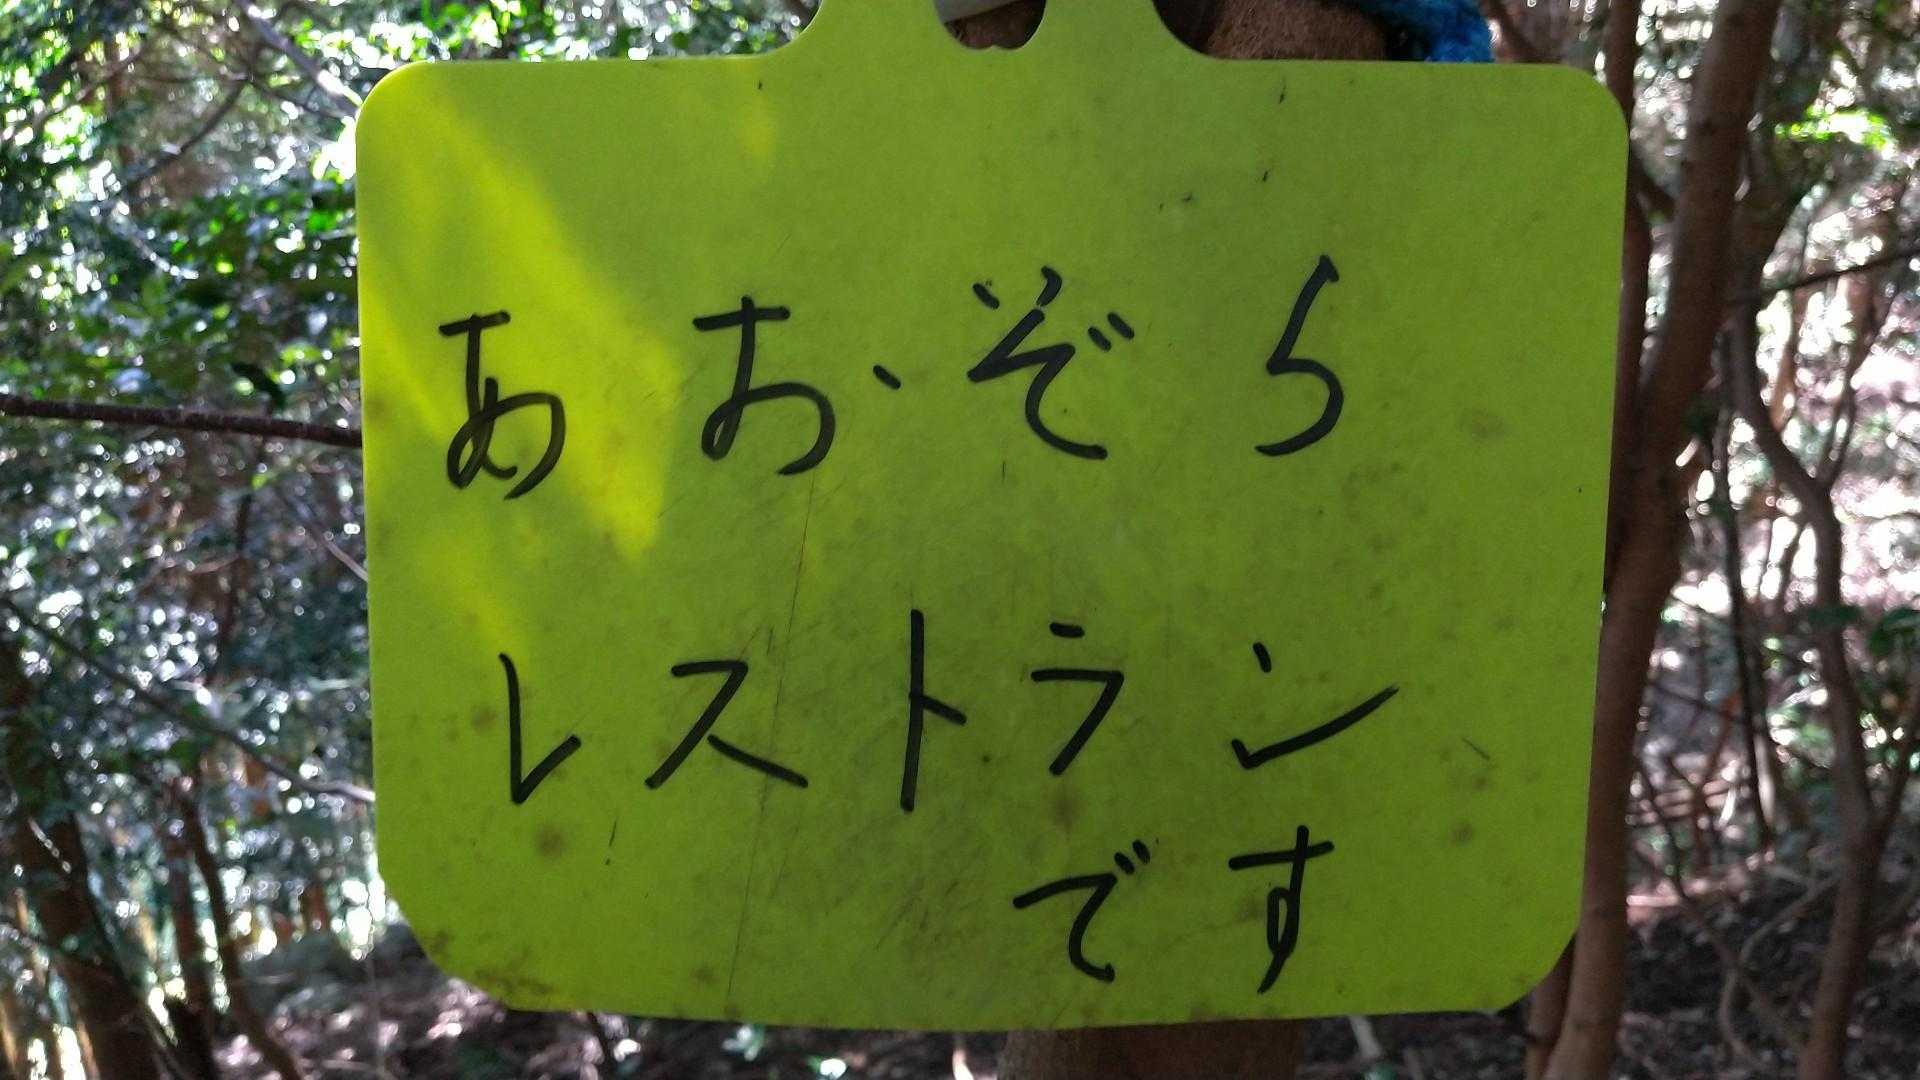 あおぞら
レストラン
です